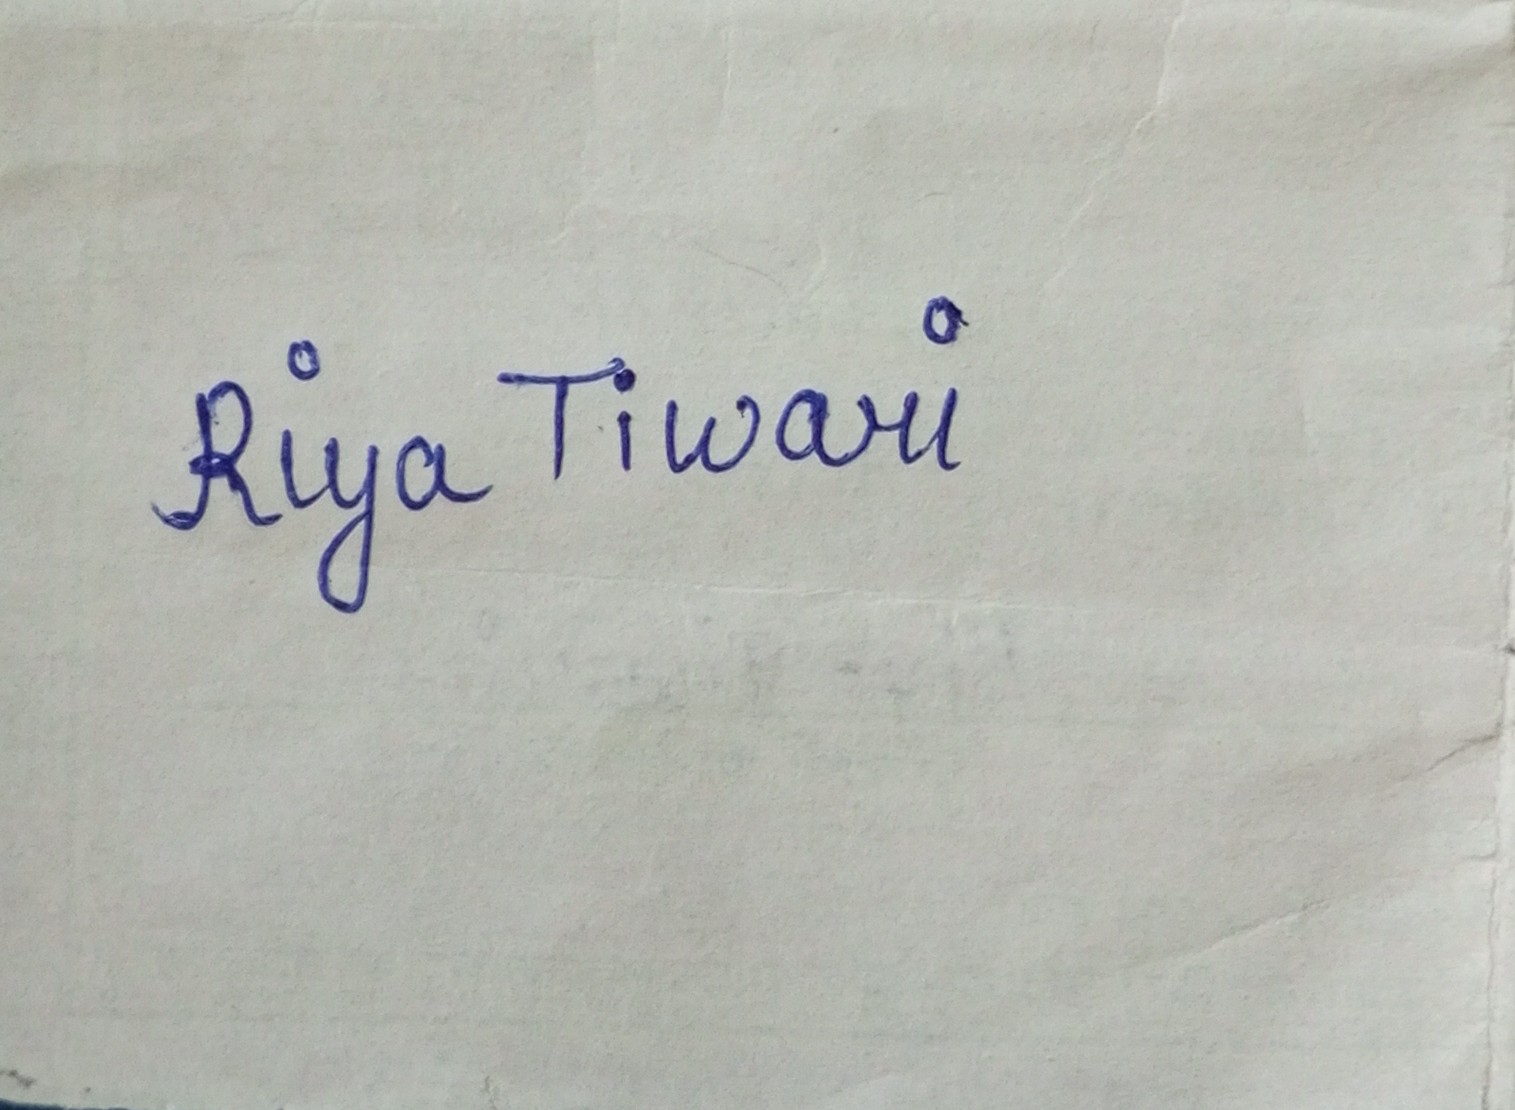 Riya Tiwari